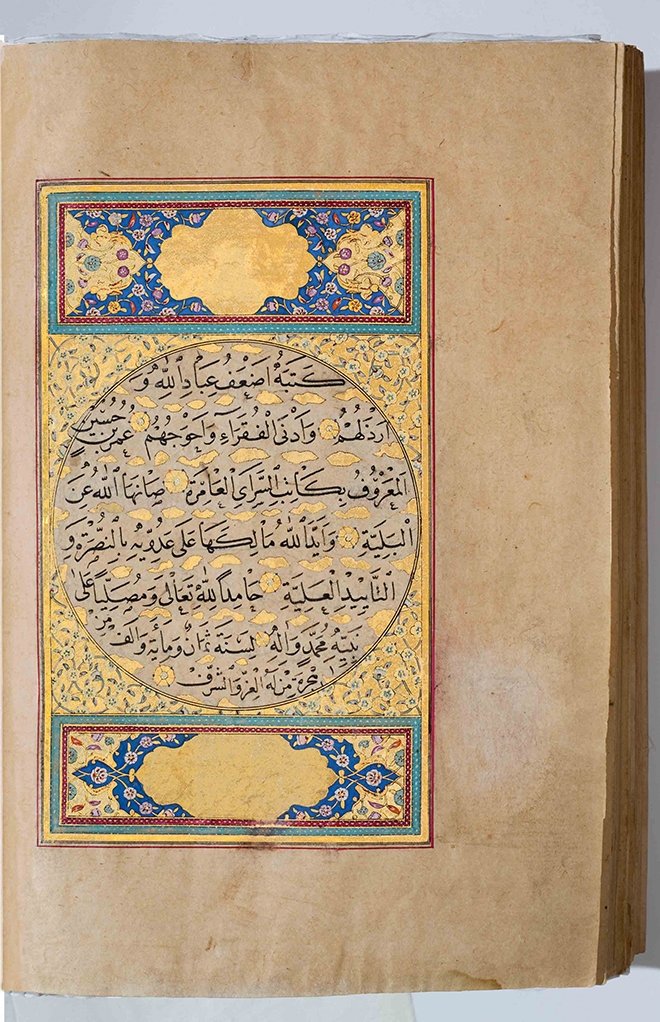 كَتَبَهُ اَضْعَفُ عِبَادِ اللّٰهِ وَ
اَرْذَلُهُمْ وَاَدْنَى الْفُقَرَاءِ وَاَحْوَجُهُمْ عُمَرُ بْنُ حُسَيْنٍ
الْمَعْرُوفُ بِكَاتِبِ السَّرَاىِ الْعَامِرَةِ صَانَهَا اللّٰهُ عَنِ
الْبَلِيَّةِ وَاَيَّدَ اللّٰهُ مَالِكَهَا عَلَى عَدُوِّيهِ بِالنُّصْرَةِ وَ
التَّأْيِيدِ الْعَلِيَّةِ حَامِداً لِلّٰهِ تَعَالٰى وَمُصَلِّياً عَلٰى
نَبِيِّهِ مُحَمَّدٍ وَاٰلِهِ لِسَنَةِ ثَمَانٍ وَمِائَةٍ وَاَلْفٍ مِنْ
هِجْرَةِ مَنْ لَهُ الْعِزُّ وَالشَّرَفُ